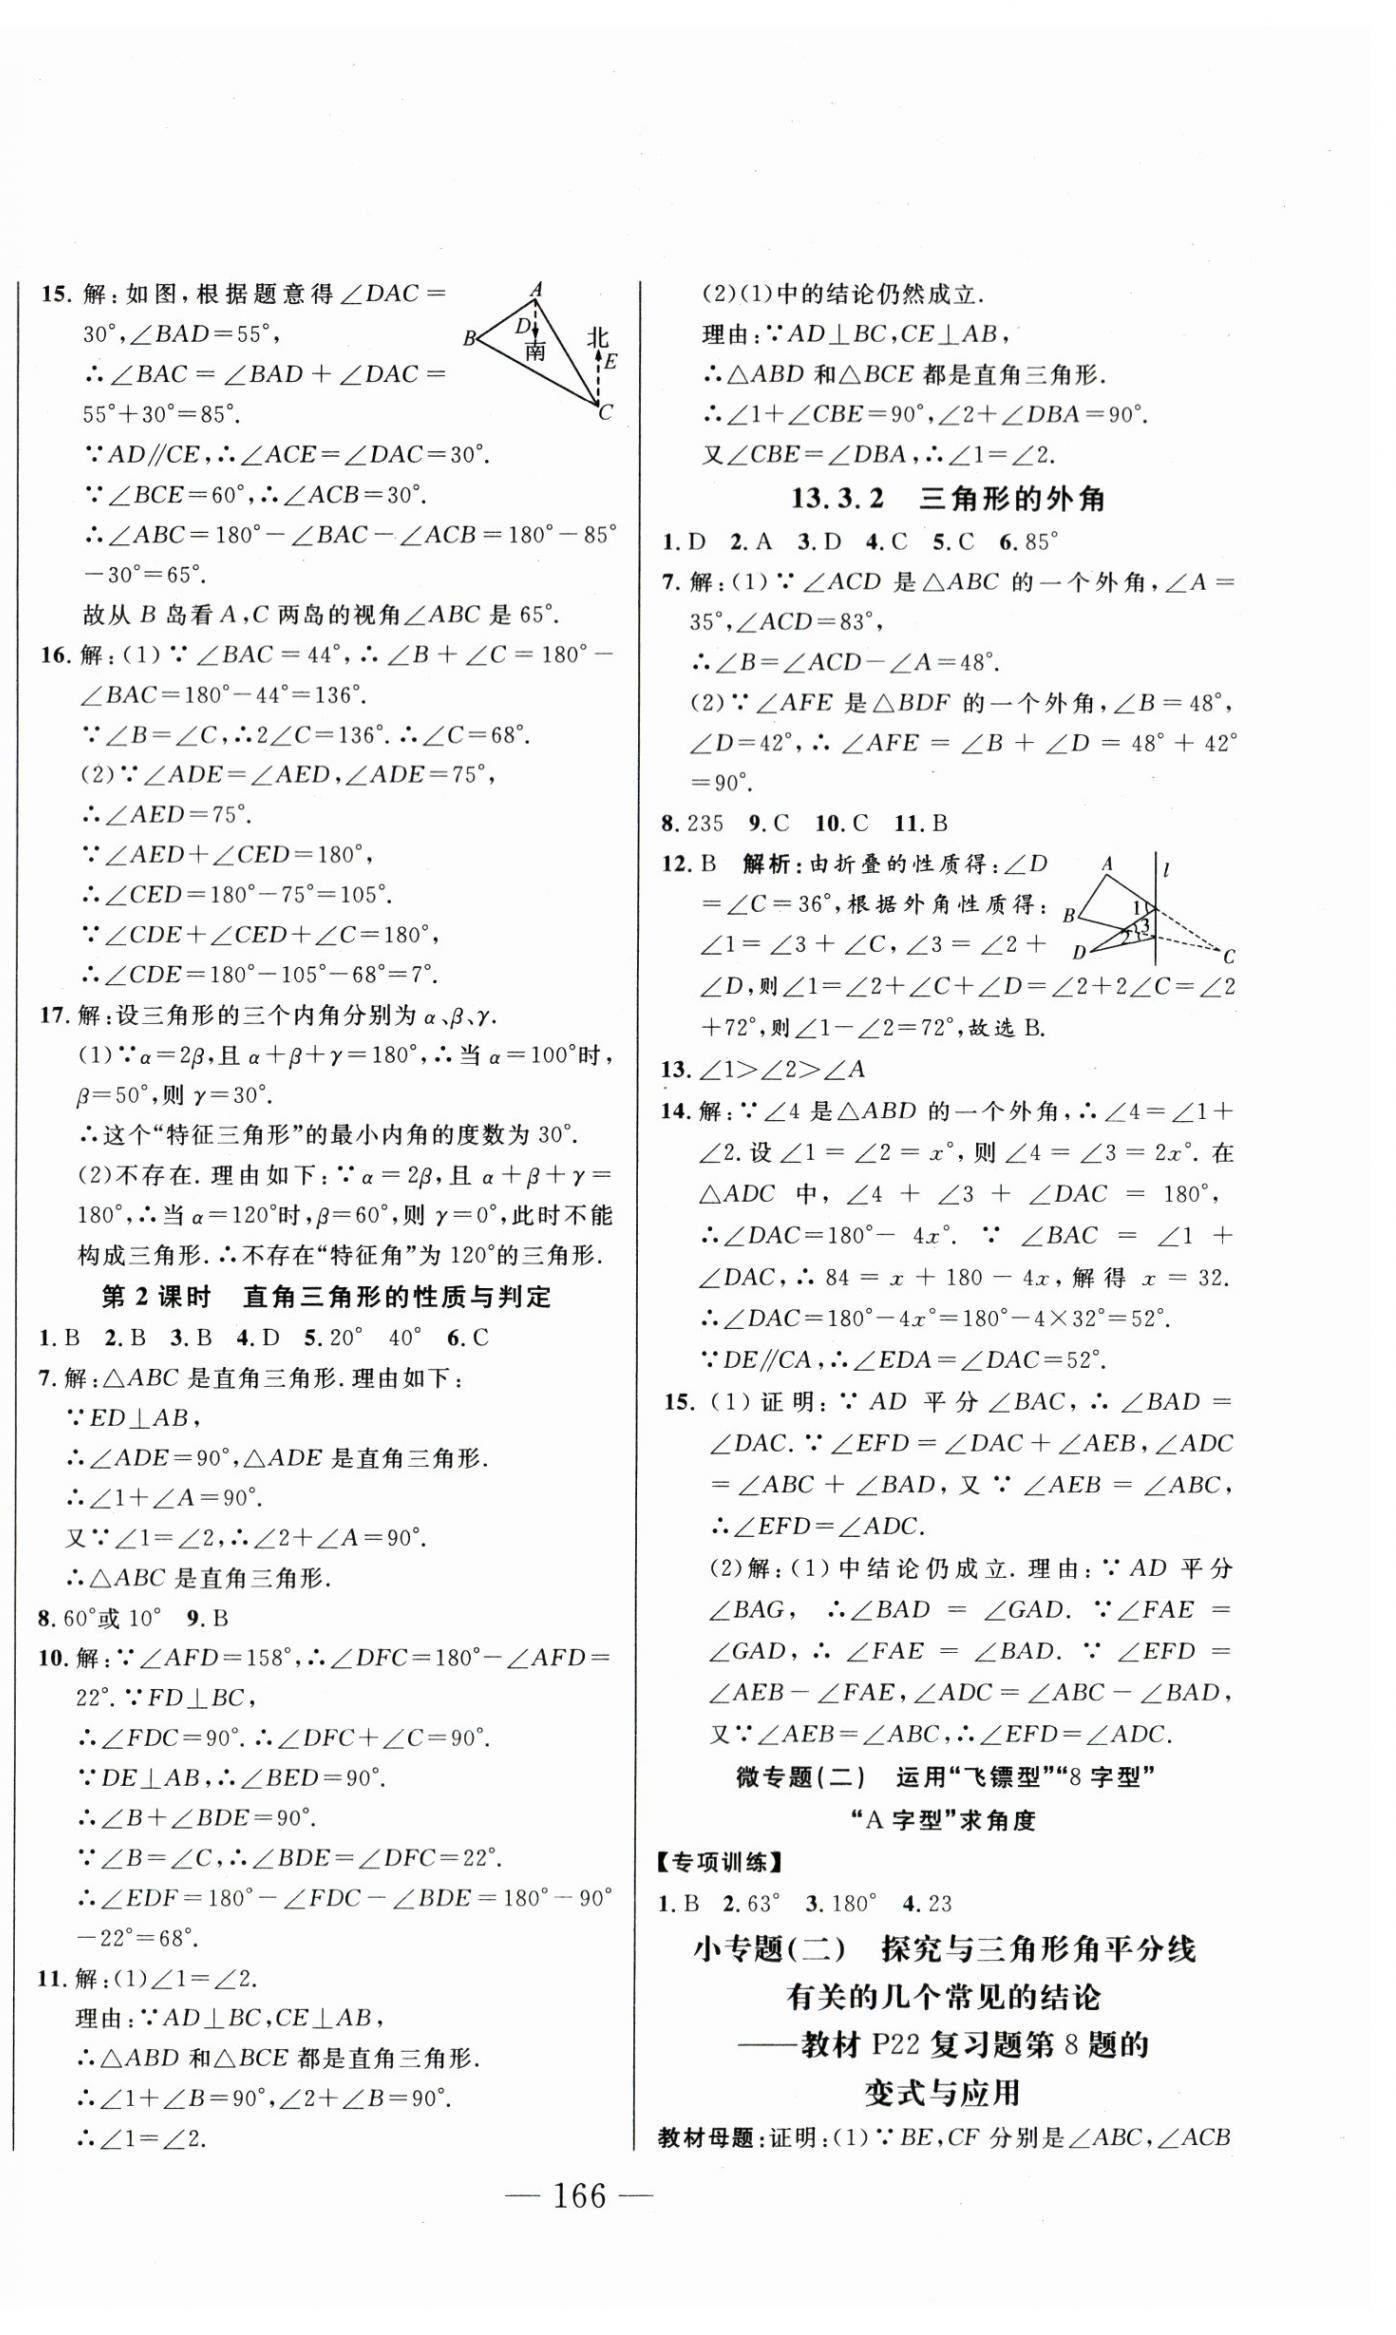 15. 解:如图,根据题意得∠DAC=
30°,∠BAD=55°,
∴∠BAC=∠BAD+∠DAC=
55°+30°=85°.
∵AD∥CE,∴∠ACE=∠DAC=30°.
∵∠BCE=60°,∴∠ACB=30°.
∴∠ABC=180°-∠BAC-∠ACB=180°-85°
-30°=65°.
故从 B 岛看 A,C 两岛的视角∠ABC 是 65°.
A
B
D
南
北
E
C
16. 解:(1)∵∠BAC=44°,∴∠B+∠C=180°-
∠BAC=180°-44°=136°.
∵∠B=∠C,∴2∠C=136°.∴∠C=68°.
(2)∵∠ADE=∠AED,∠ADE=75°,
∴∠AED=75°.
∵∠AED+∠CED=180°,
∴∠CED=180°-75°=105°.
∵∠CDE+∠CED+∠C=180°,
∴∠CDE=180°-105°-68°=7°.
17. 解:设三角形的三个内角分别为 α、β、γ.
(1)∵α=2β,且 α+β+γ=180°,∴当 α=100°时,
β=50°,则 γ=30°.
∴这个“特征三角形”的最小内角的度数为 30°.
(2)不存在.理由如下:∵α=2β,且 α+β+γ=
180°,∴当 α=120°时,β=60°,则 γ=0°,此时不能
构成三角形.∴不存在“特征角”为 120°的三角形.
第 2 课时 直角三角形的性质与判定
1. B 2. B 3. B 4. D 5. 20° 40° 6. C
7. 解:△ABC 是直角三角形.理由如下:
∵ED⊥AB,
∴∠ADE=90°,△ADE 是直角三角形.
∴∠1+∠A=90°.
又∵∠1=∠2,∴∠2+∠A=90°.
∴△ABC 是直角三角形.
8. 60°或 10° 9. B
10. 解:∵∠AFD=158°,∴∠DFC=180°-∠AFD=
22°.∵FD⊥BC,
∴∠FDC=90°.∴∠DFC+∠C=90°.
∵DE⊥AB,∴∠BED=90°.
∴∠B+∠BDE=90°.
∵∠B=∠C,∴∠BDE=∠DFC=22°.
∴∠EDF=180°-∠FDC-∠BDE=180°-90°
-22°=68°.
11. 解:(1)∠1=∠2.
理由:∵AD⊥BC,CE⊥AB,
∴△ABD 和△BCE 都是直角三角形.
∴∠1+∠B=90°,∠2+∠B=90°.
∴∠1=∠2.
(2)(1)中的结论仍然成立.
理由:∵AD⊥BC,CE⊥AB,
∴△ABD 和△BCE 都是直角三角形.
∴∠1+∠CBE=90°,∠2+∠DBA=90°.
又∠CBE=∠DBA,∴∠1=∠2.
13.3.2 三角形的外角
1. D 2. A 3. D 4. C 5. C 6. 85°
7. 解:(1)∵∠ACD 是△ABC 的一个外角,∠A=
35°,∠ACD=83°,
∴∠B=∠ACD-∠A=48°.
(2)∵∠AFE 是△BDF 的一个外角,∠B=48°,
∠D=42°,∴∠AFE=∠B+∠D=48°+42°
=90°.
8. 235 9. C 10. C 11. B
12. B 解析:由折叠的性质得:∠D
=∠C=36°,根据外角性质得:
∠1=∠3+∠C,∠3=∠2+
∠D,则∠1=∠2+∠C+∠D=∠2+2∠C=∠2
+72°,则∠1-∠2=72°,故选 B.
A
l
B
1
3
2
D
C
13. ∠1>∠2>∠A
14. 解:∵∠4 是△ABD 的一个外角,∴∠4=∠1+
∠2.设∠1=∠2=x°,则∠4=∠3=2x°.在
△ADC 中,∠4+∠3+∠DAC=180°,
∴∠DAC=180°-4x°.∵∠BAC=∠1+
∠DAC,∴84=x+180-4x,解得 x=32.
∴∠DAC=180°-4x°=180°-4×32°=52°.
∵DE∥CA,∴∠EDA=∠DAC=52°.
15. (1)证明:∵AD 平分∠BAC,∴∠BAD=
∠DAC.∵∠EFD=∠DAC+∠AEB,∠ADC
=∠ABC+∠BAD,又∵∠AEB=∠ABC,
∴∠EFD=∠ADC.
(2)解:(1)中结论仍成立.理由:∵AD 平分
∠BAG,∴∠BAD=∠GAD.∵∠FAE=
∠GAD,∴∠FAE=∠BAD.∵∠EFD=
∠AEB-∠FAE,∠ADC=∠ABC-∠BAD,
又∵∠AEB=∠ABC,∴∠EFD=∠ADC.
微专题(二) 运用“飞镖型”“8 字型”
“A 字型”求角度
【专项训练】
1. B 2. 63° 3. 180° 4. 23
小专题(二) 探究与三角形角平分线
有关的几个常见的结论
——教材 P22 复习题第 8 题的
变式与应用
教材母题:证明:(1)∵BE,CF 分别是∠ABC,∠ACB
— 166 —